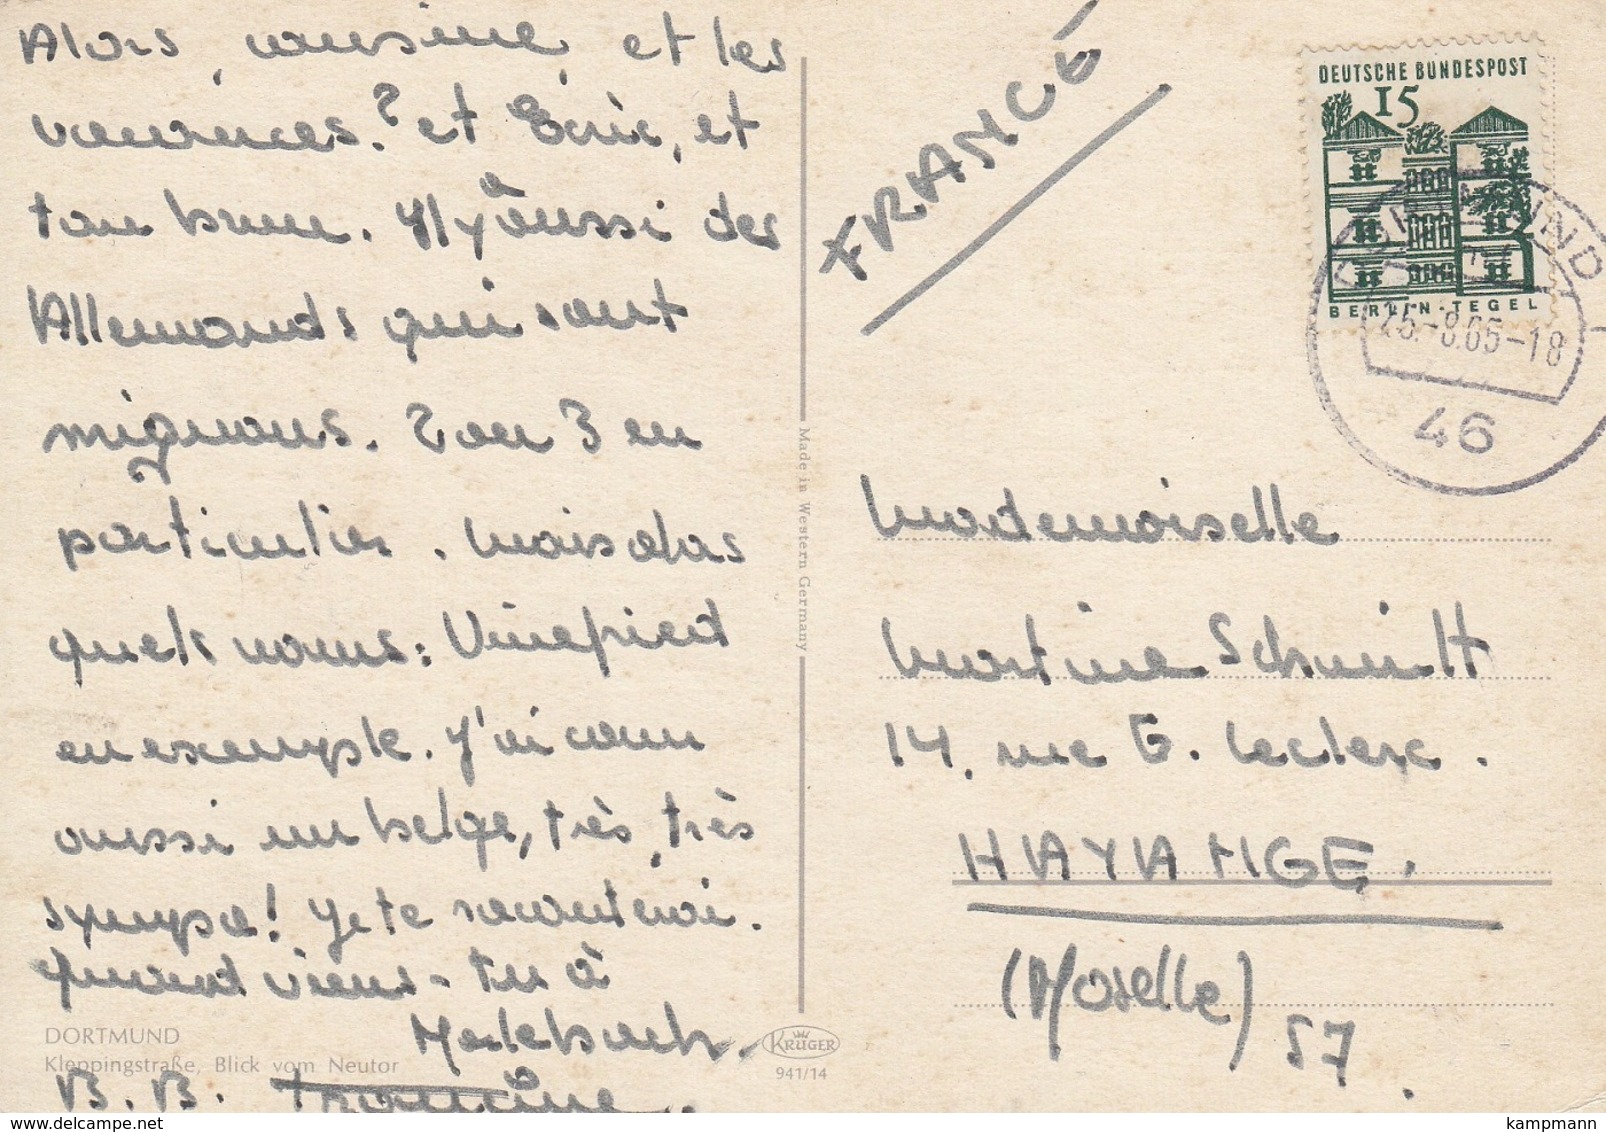 Alors, cousine, et les
vacances ? et Eric, et
ton brun. Il y a aussi des
Allemands qui sont
mignons. 2 ou 3 en
particulier. Mais alas
quels noms : Vinefried
en exemple. J'ai connu
aussi un belge, très, très
sympa ! Je te raconterai.
Quand viens-tu à
Malebach.
B. B.
DORTMUND
Kleppingstraße, Blick vom Neutor
KRÜGER
941/14
Made in Western Germany
FRANCE
DEUTSCHE BUNDESPOST
15
BERLIN-TEGEL
DORTMUND
-8.65-18
46
Mademoiselle
Martine Schmitt
14, rue G. Leclerc.
HAYANGE.
(Moselle) 57.
kampmann